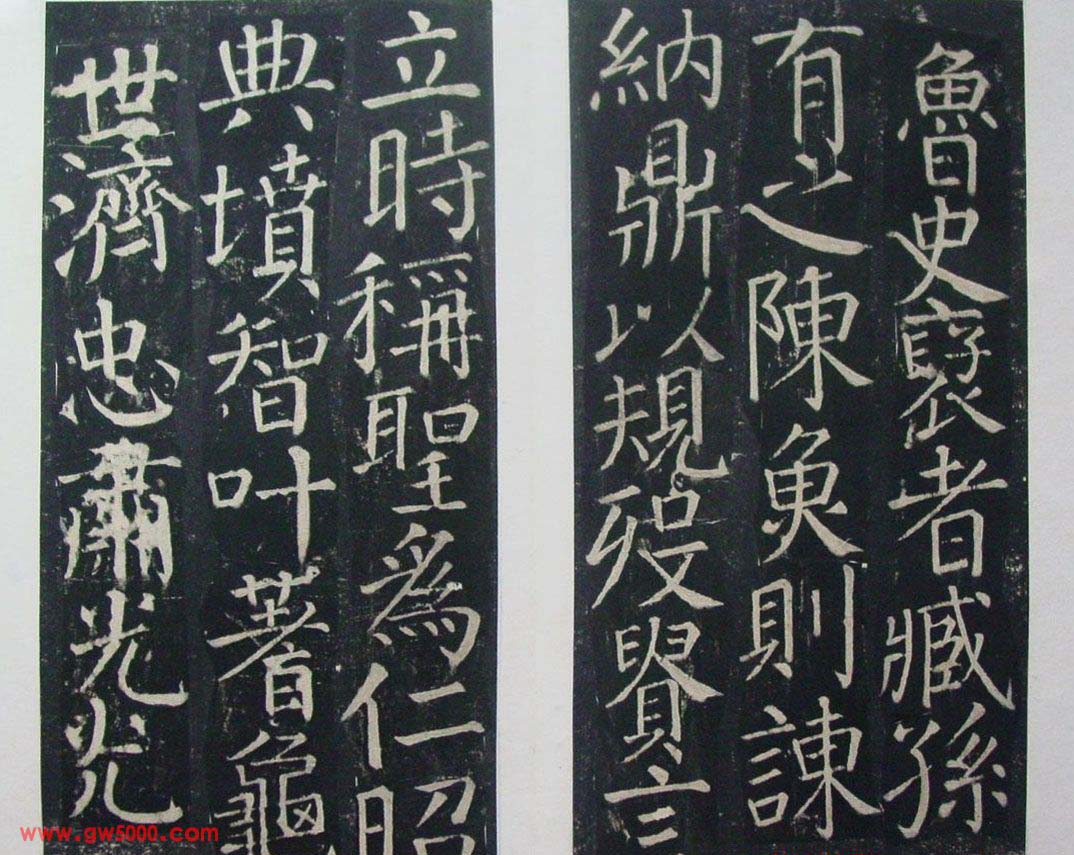 魯史褒者臧孫
有之陳魚則諫
納鼎以規歿賢言
立時稱聖爲仁昭
典墳智叶蓍龜
世濟忠肅光光
www.gw5000.com